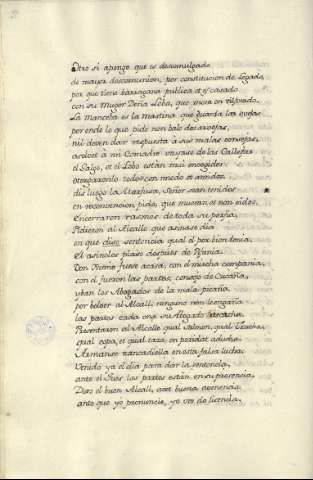 Otro si apongo que es descomulgado
de mayor descomunion, por constitucion de Legado,
por que tiene barragana publica et es casado
con su Muger Doña Loba, que mora en vilforado.
La Manceba es la Mastina que guarda las ovejas
por ende lo que pide non bale dos arvejas,
nil deven dar respuesta à sus malas consejas,
asolvet à mi Comadre vayase de las Callejas
el Galgo, et el Lobo estan mui encogidos
otorgaronlo todo con miedo et amidos.
diz luego la Marfusa, Señor sean tenidos
en reconvencion pido, que mueran et non oidos.
Encerraron rasones de toda su porfia,
Pidieron al Alcalle que asinase dia
en que diese sentencia qual el por bien tenia,
el asinoles plazo despues de Pifania.
Don Ximio fuese à casa, con el mucha compania,
con el fueron las partes, consejo de Cucaña,
iban los Abogados de la mala picaña
por bolver al Alcalle ninguno non lo engaña
las partes cada una su Abogado escucha,
Presentaron al Alcalle qual salmon, qual trucha,
qual copa, et qual taza en poridat aducha
Armanse zancadilla en esta falsa lucha.
Venido ya el dia para dar la sentencia,
ante el Jues las partes estan en su presencia,
Dixo el buen Alcalle, avet buena avenencia
ante que yo pronuncie, yo vos do licencia.